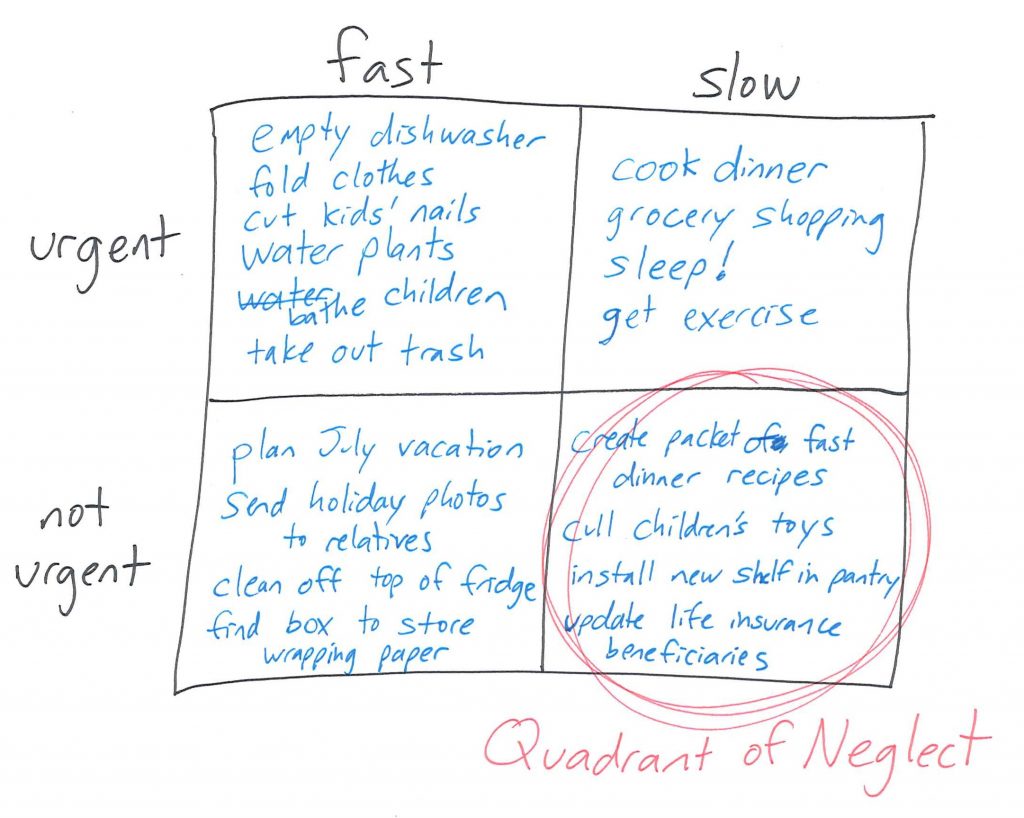 fast
slow
urgent
empty dishwasher
fold clothes
cut kids' nails
water plants
water children
bathe
take out trash
cook dinner
grocery shopping
sleep!
get exercise
not
urgent
plan July vacation
send holiday photos
to relatives
clean off top of fridge
find box to store
wrapping paper
create packet of fast
dinner recipes
cull children's toys
install new shelf in pantry
update life insurance
beneficiaries
Quadrant of Neglect